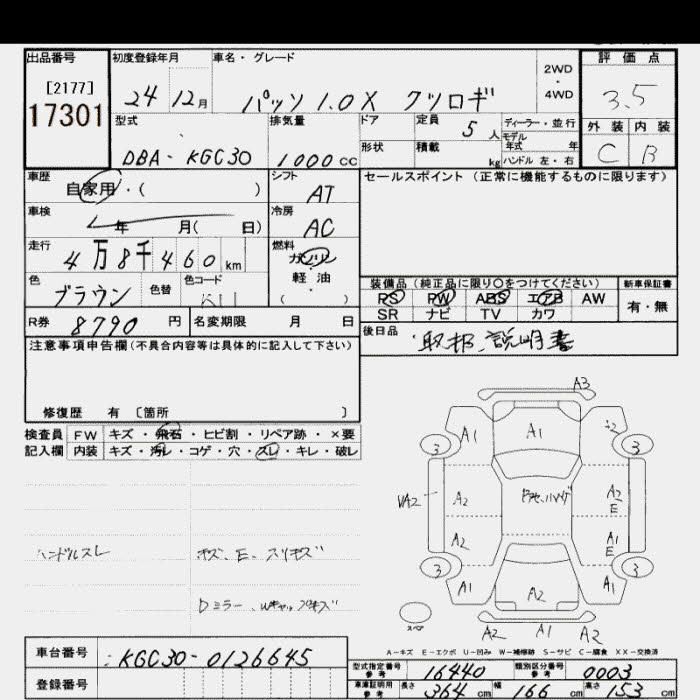 出品番号
[2177]
17301
初度登録年月
24 12月
車名・グレード
パッソ 1.0X クツロギ
2WD
・
4WD
評価点
3.5
外装 内装
C B
型式
DBA-KGC30
排気量
1000cc
ドア
形状
定員 5人
積載 kg
ディーラー・並行
モデル
年式 年
ハンドル 左・右
車歴
自家用・( )
シフト
AT
セールスポイント(正常に機能するものに限ります)
車検
年 月( 日)
冷房
AC
走行
4万8千460km
燃料
ガソリン
・
軽油
( )
色
ブラウン
色替
色コード
装備品(純正品に限り○をつけてください)
PS PW ABS エアB AW
SR ナビ TV カワ
新車保証書
有・無
R券 8790円
名変期限 月 日
後日品
取扱、説明書
注意事項申告欄(不具合内容等は具体的に記入して下さい)
修復歴 有 〔箇所 〕
検査員
記入欄
FW キズ・飛石・ヒビ割・リペア跡・×要
内装 キズ・汚レ・コゲ・穴・スレ・キレ・破レ
ハンドルスレ
キズ、E、スリキズ
Dミラー、Wキャップキズ
A3
A1 A1
3 3
A2 A2
E
A2 A1
E
3 3
A1 A2 A1
スペア
A2 A1 A2
A-キズ E-エクボ U-凹み W-補修跡 S-サビ C-腐食 XX-交換済
車台番号
KGC30-0126645
登録番号
型式指定番号
参考
16440
類別区分番号
参考
0003
車庫証明用
参考
長さ 364 cm 幅 166 cm 高さ 153 cm